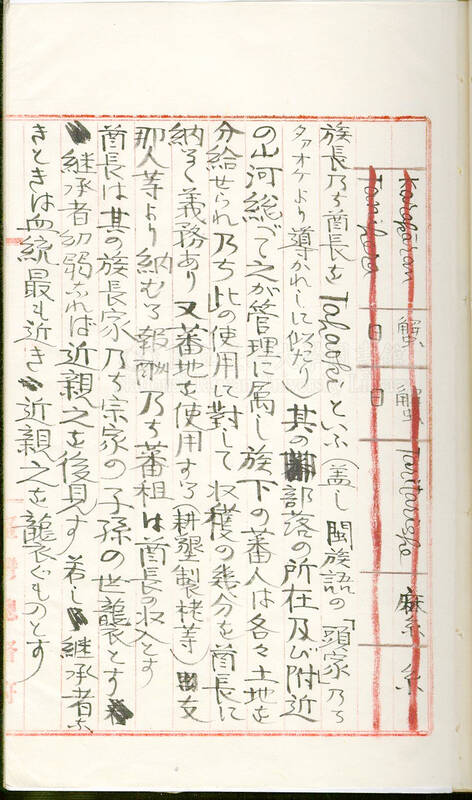 Karokoran 蟹 蟹 麻糸 糸
目 目
族長乃ち酋長を といふ（蓋し閩族語の「頭家」乃ち
タァオケより導かれしに似たり）其の部落の所在及び附近
の山河総べて之が管理に属し族下の蕃人は各々土地を
分給せられ乃ち此の使用に對して収穫の幾分を酋長に
納むる義務あり又蕃地を使用する（耕墾製栳等）支
那人等より納むる報酬乃ち蕃租は酋長の収入とす
酋長は其の族長家乃ち宗家の子孫の世襲とす
継承者幼弱なれば近親之を後見す若し継承者な
きときは血統最も近き近親之を襲ぐものとす